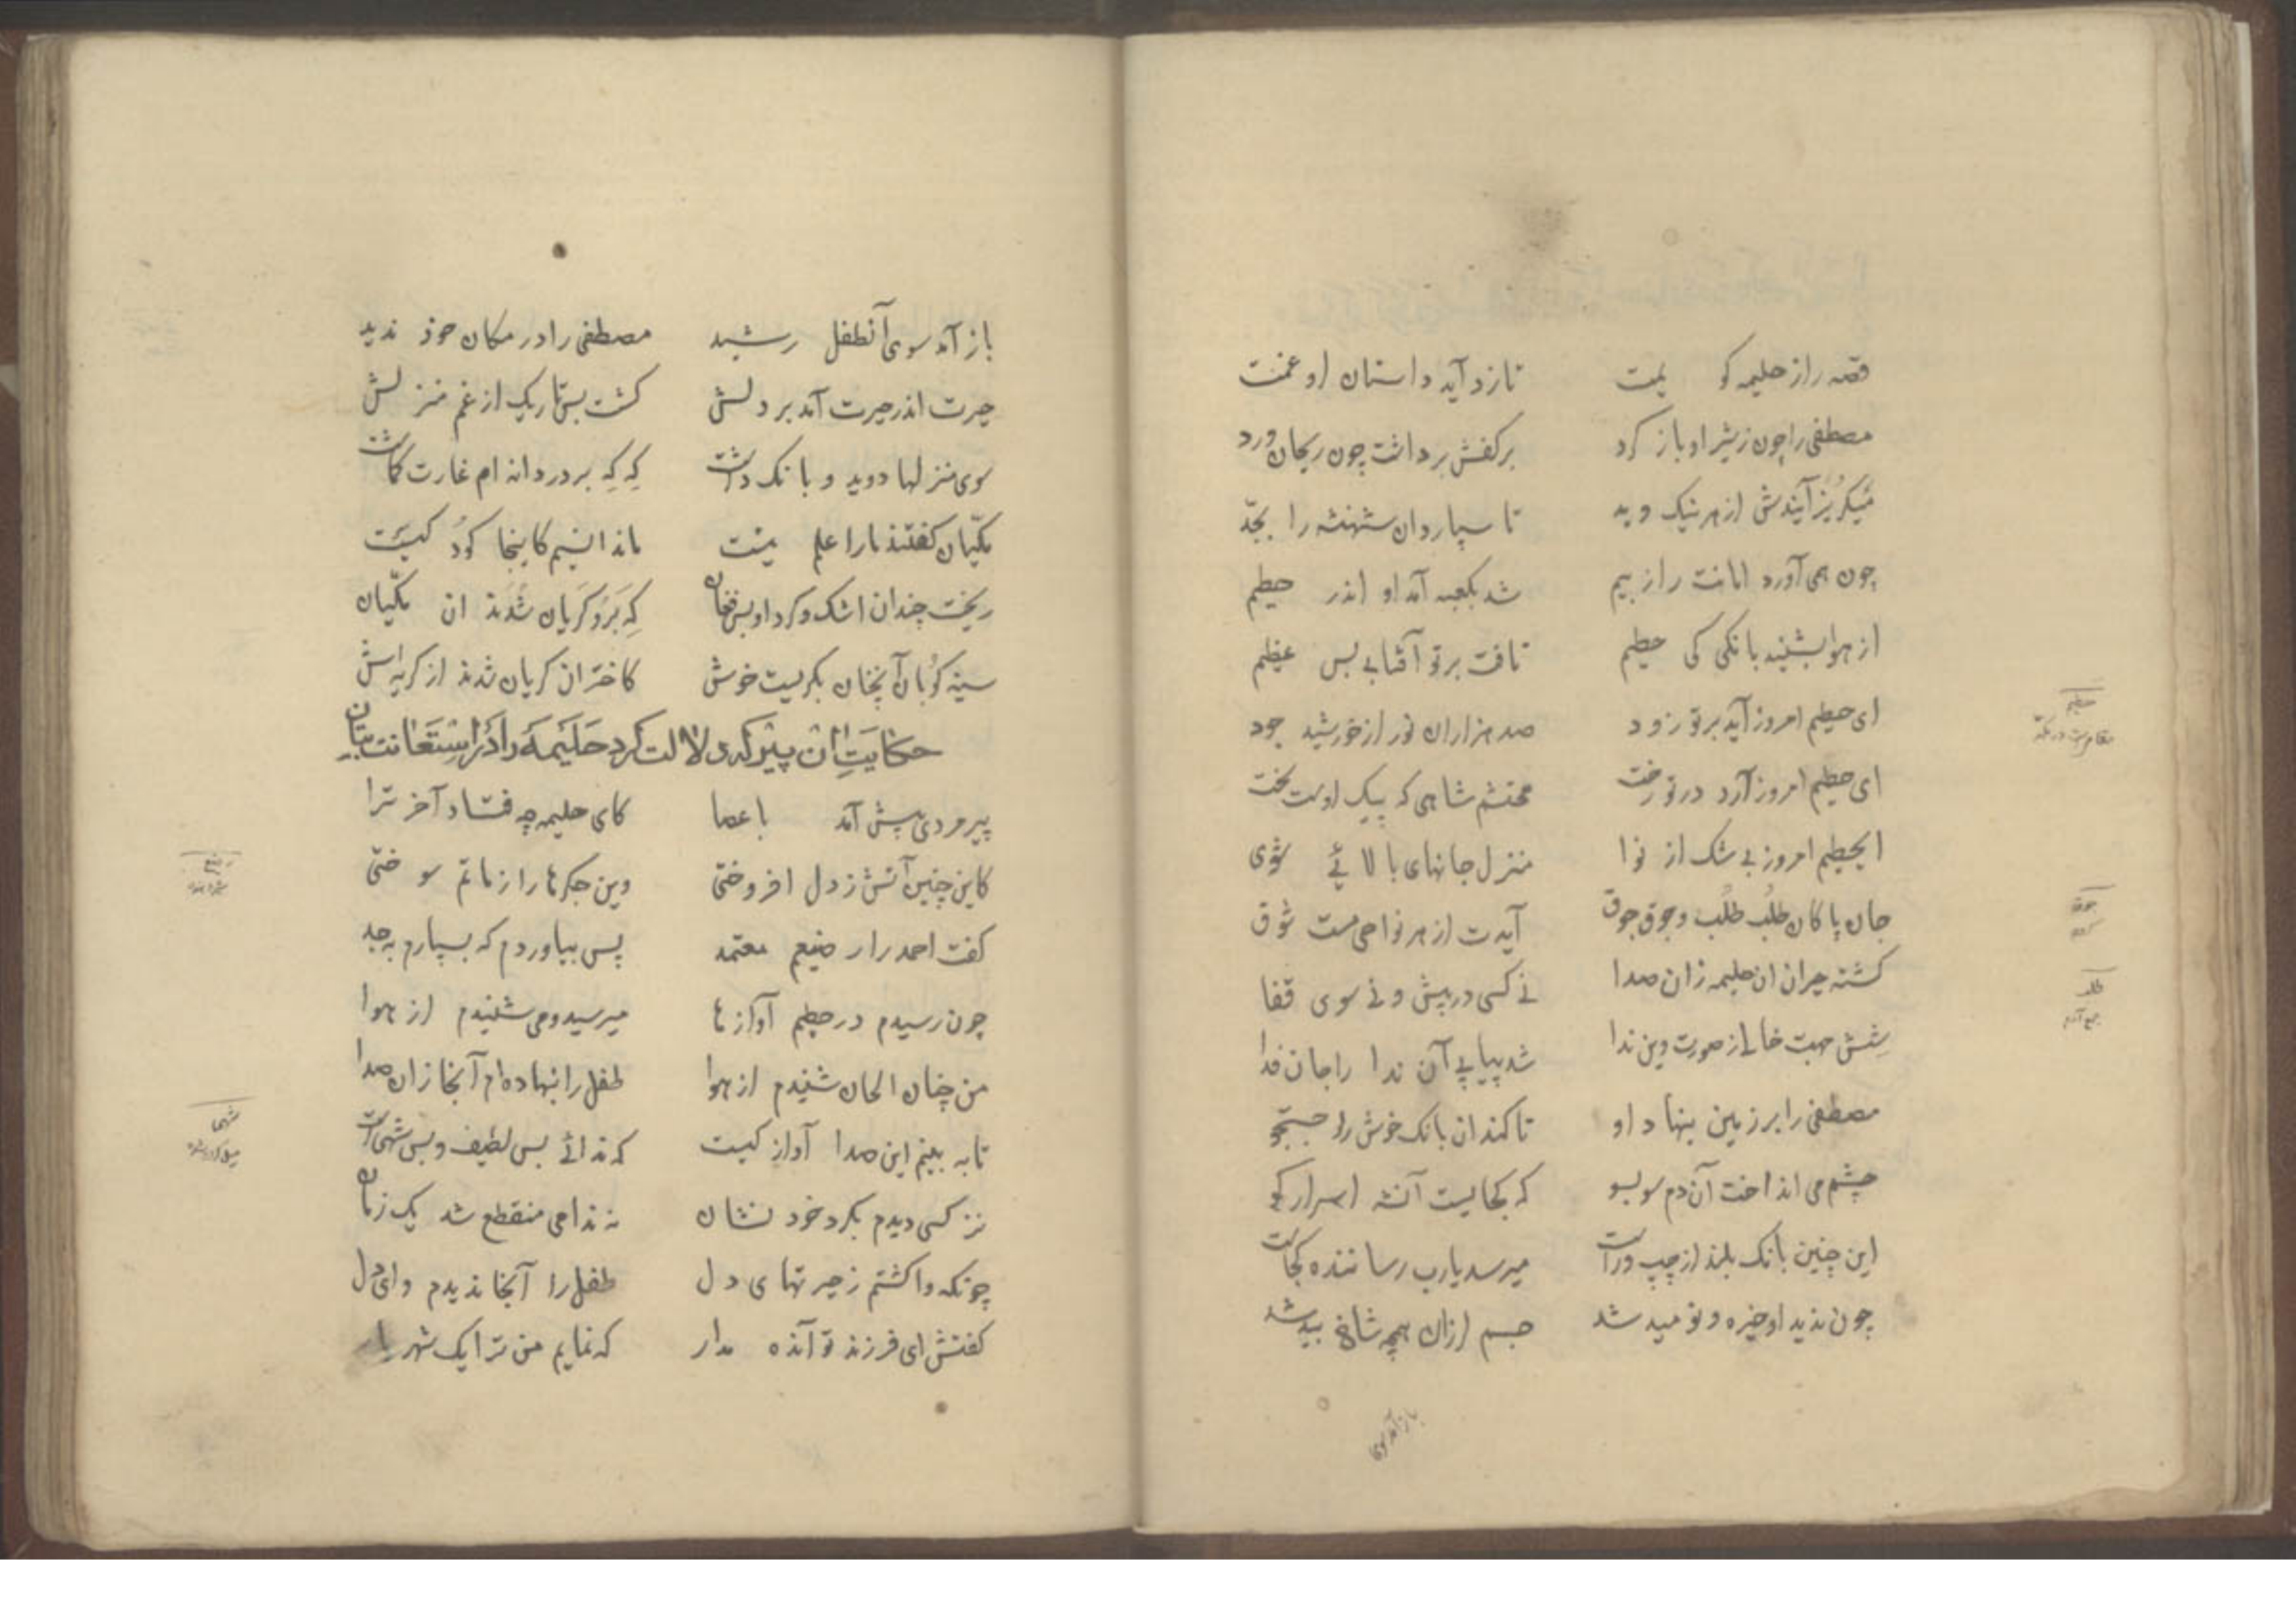 قصه راز حلیمه کو یمت تا زداید داستان او غمت
مصطفی را چون ز شیر او باز کرد بر کفش برداشت چون ریحان ورد
میکریزآیندش از هر نیک وبد تا سپارد ان شهنشه را بجدّ
چون همی آورد امانت را ز بیم شد بکعبه آمد او اندر حطیم
از هوا بشنید بانکی کی حطیم تافت بر تو آفتابے بس عظیم
ای حطیم امروز آید بر تو زود صد هزاران نور از خورشید جود
ای حطیم امروز آرد در تو رخت محتشم شاهی که پیک اوست بخت
ایحطیم امروز بے شک از نوا منزل جانهای بالائے شوی
جان پاکان طُلب طُلب وجوق جوق آیدت از هر نواحی مست شوق
کشته حیران ان حلیمه زان صدا نے کسی در پیش و نے سوی قفا
شِش جهت خالے از صورت وین ندا شد پیاپے آن ندا را جان فدا
مصطفی را بر زمین بنهاد او تا کند ان بانک خوش را جستجو
چشم می انداخت آن دم سو بسو که کجایست آنشه اسرار کو
این چنین بانک بلند از چپ وراست میرسد یارب رساننده کجاست
چون ندید او خیره و نومید شد جسم لرزان همچو شاخ بید شد
باز آمد سوی
حطیم
جوق
باز آمد سوی آنطفل رشید مصطفی را در مکان خوذ ندید
حیرت اندر حیرت آمد بر دلش کشت بس تاریک از غم منزلش
سوی منزلها دوید و بانک داشت کِه کِه بر دردانه ام غارت کماشت
مکّیان کفتند ما را علم نیست ما ندانسیم کاینجا کودُ کیست
ریخت چندان اشک و کرد او بس فغان کِه بَرو کَریان شُدند ان مکّیان
سینه کوبان آنچنان بکریست خوش کاختران کریان شدند از کریه اش
حکایت ان پیر که دلالت کرد حلیمه را در استعانت بتان
پیرمردی پیش آمد با عصا کای حلیمه چه فتاد آخر ترا
کاین چنین آتش ز دل افروختی وین جکرها را ز ماتم سوختی
کفت احمد را رضیعم معتمد پس بیاوردم که بسپارم به جد
چون رسیدم در حطیم آوازها میرسید ومی شنیدم از هوا
من چنان الحان شنیدم از هوا طفل را بنهاده ام آنجا زان صدا
تا به بینم این صدا آواز کیست که ندائے بس لطیف و بس شهی است
نز کسی دیدم بکرد خود نشان نه ندا می منقطع شد یک زمان
چونکه واکشتم ز حیرتهای دل طفل را آنجا ندیدم وای دل
کفتش ای فرزند تو آنده مدار که نمایم من ترا یک شهریار
رضیع
شهی